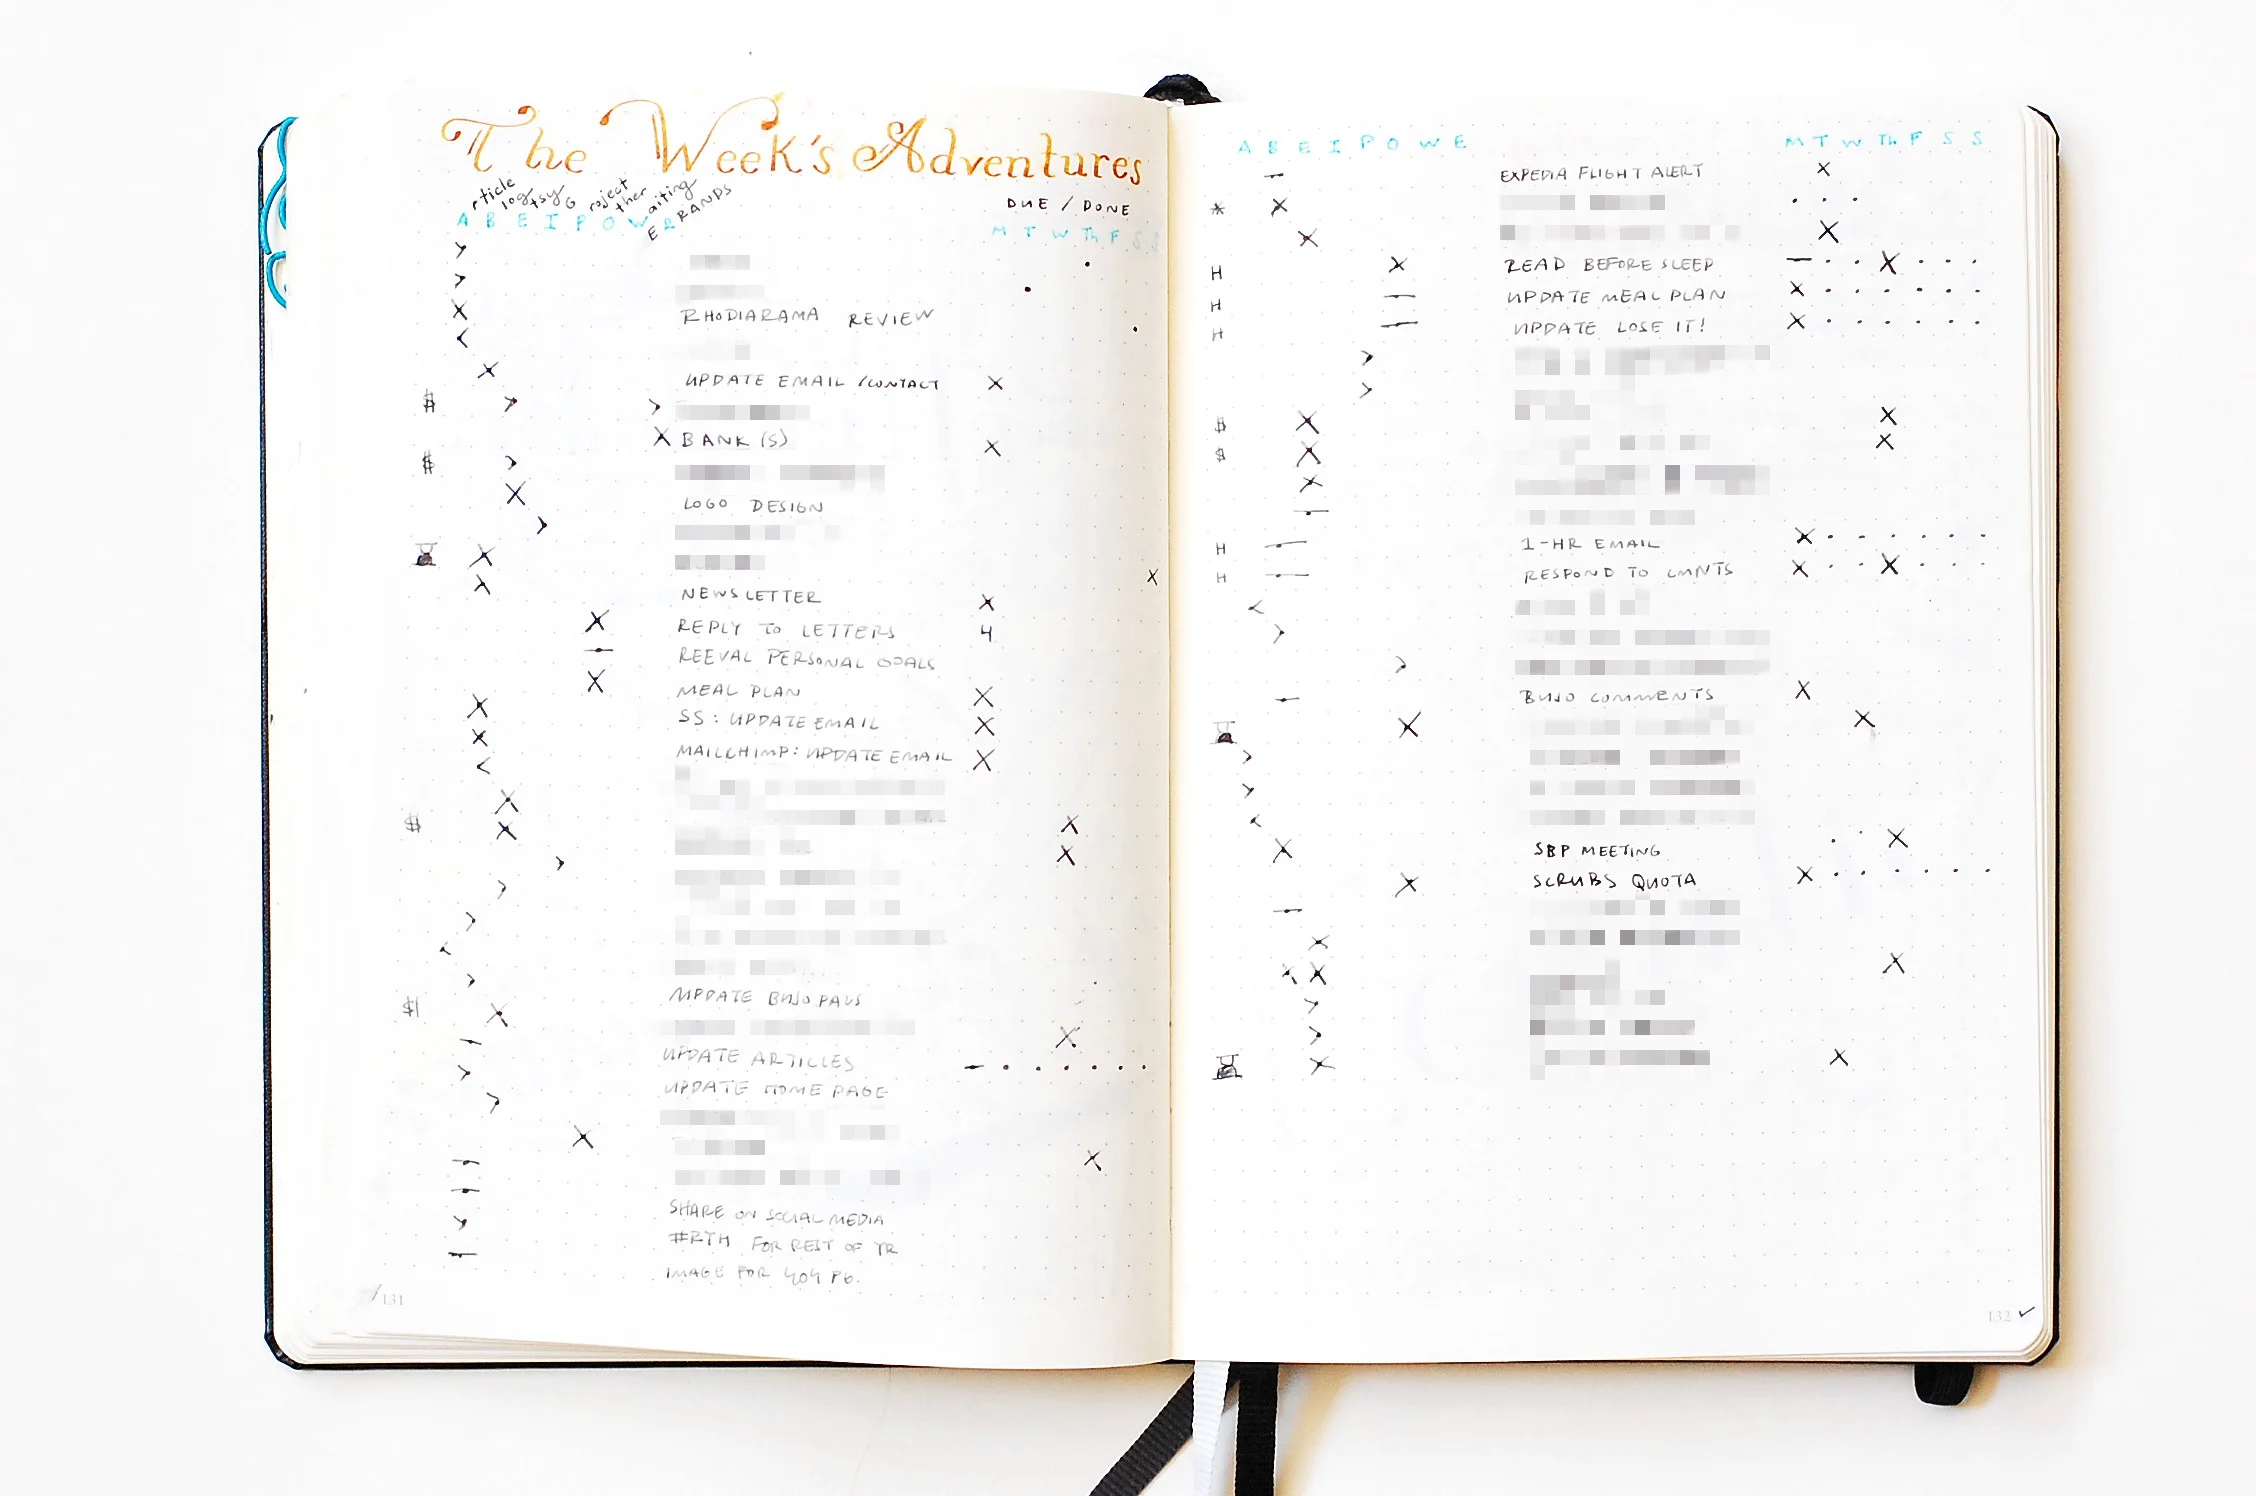 The Week's Adventures
rticle log tsy G roject ther aiting ERRANDS
DUE / DONE
A B E I P O W E
M T W Th F S S
RHODIARAMA REVIEW
UPDATE EMAIL / CONTACT
$
BANK (S)
$
LOGO DESIGN
NEWSLETTER
REPLY TO LETTERS 4
REEVAL PERSONAL GOALS
MEAL PLAN
SS: UPDATE EMAIL
MAILCHIMP: UPDATE EMAIL
$
UPDATE BUJO PALS
$
UPDATE ARTICLES
UPDATE HOME PAGE
SHARE ON SOCIAL MEDIA
#RTH FOR REST OF YR
IMAGE FOR 404 PG.
131
A B E I P O W E
M T W Th F S S
EXPEDIA FLIGHT ALERT
H READ BEFORE SLEEP
H UPDATE MEAL PLAN
H UPDATE LOSE IT!
$
$
H 1-HR EMAIL
H RESPOND TO CMNTS
BUJO COMMENTS
SBP MEETING
SCRUBS QUOTA
132